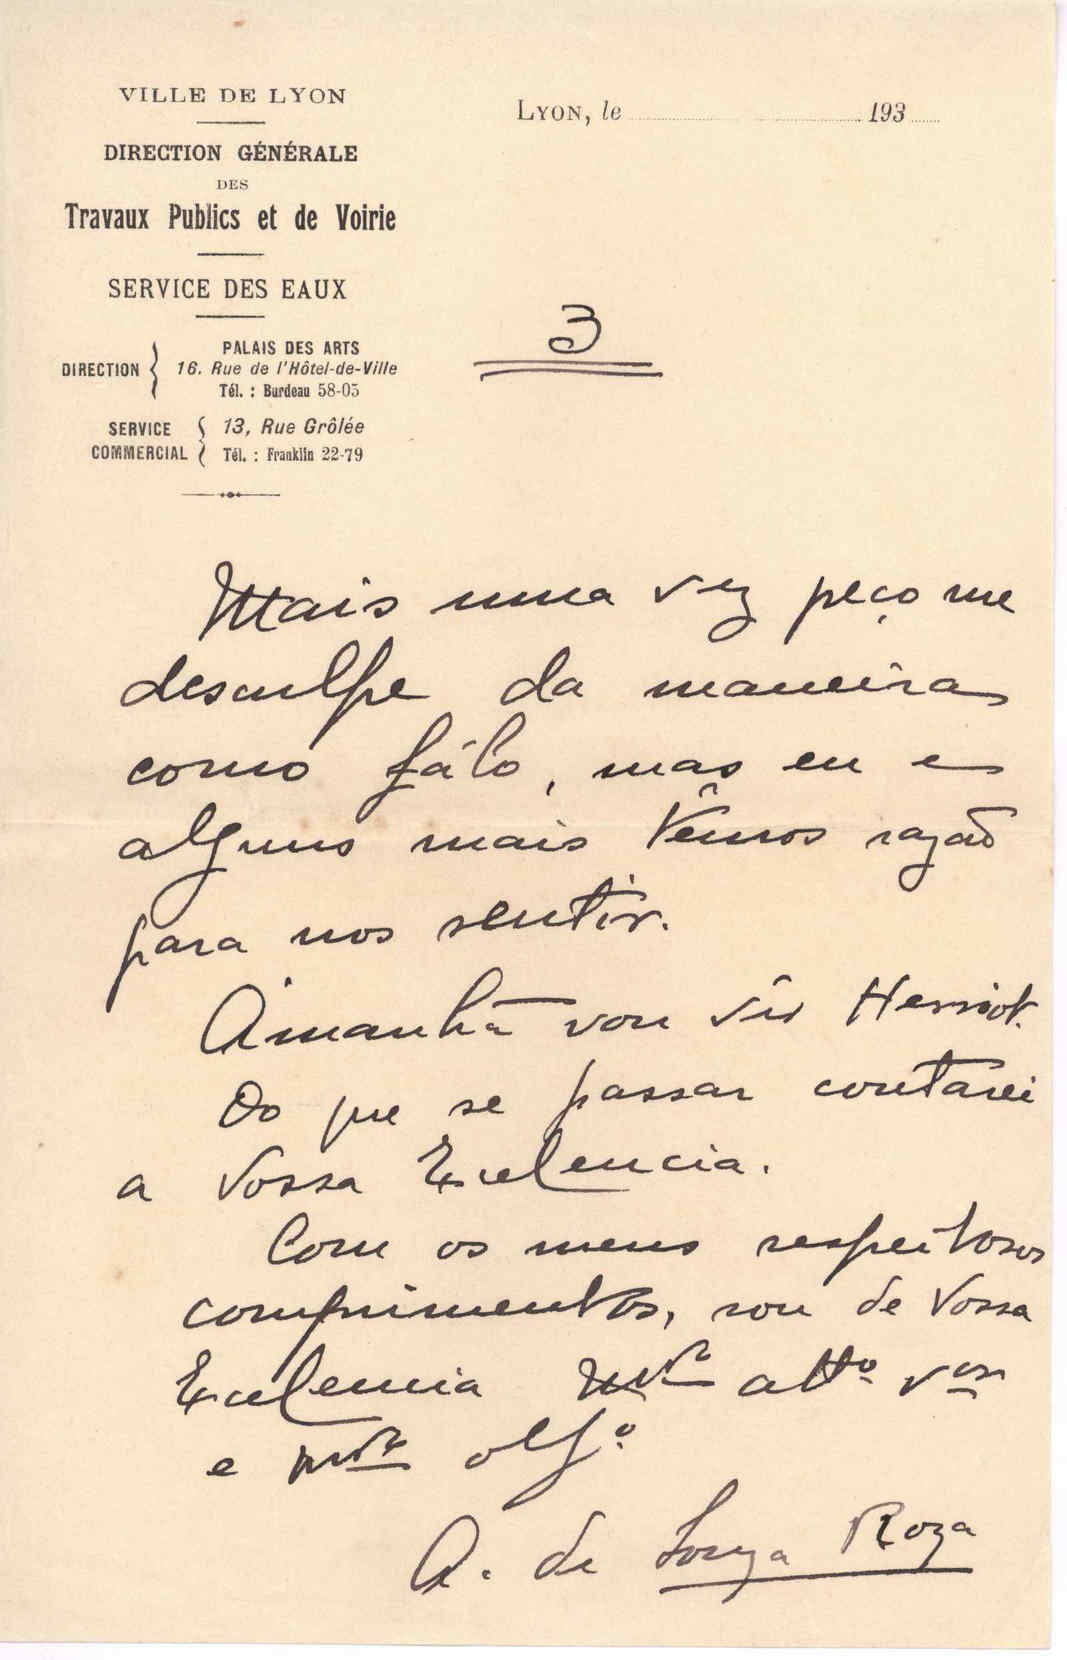 VILLE DE LYON
DIRECTION GÉNÉRALE
DES
Travaux Publics et de Voirie
SERVICE DES EAUX
DIRECTION
PALAIS DES ARTS
16, Rue de l'Hôtel-de-Ville
Tél. : Burdeau 58-05
SERVICE COMMERCIAL
13, Rue Grôlée
Tél. : Franklin 22-79
LYON, le 193
3
Mais uma vez peço me
desculpe da maneira
como fálo, mas eu e
alguns mais têmos razão
para nos sentir.
Amanhã vou vêr Herriot.
Do que se passar contarei
a Vossa Excelencia.
Com os meus respeitosos
comprimentos, sou de Vossa
Excelencia Mto atto vor
e mto obgo
A. de Souza Roza